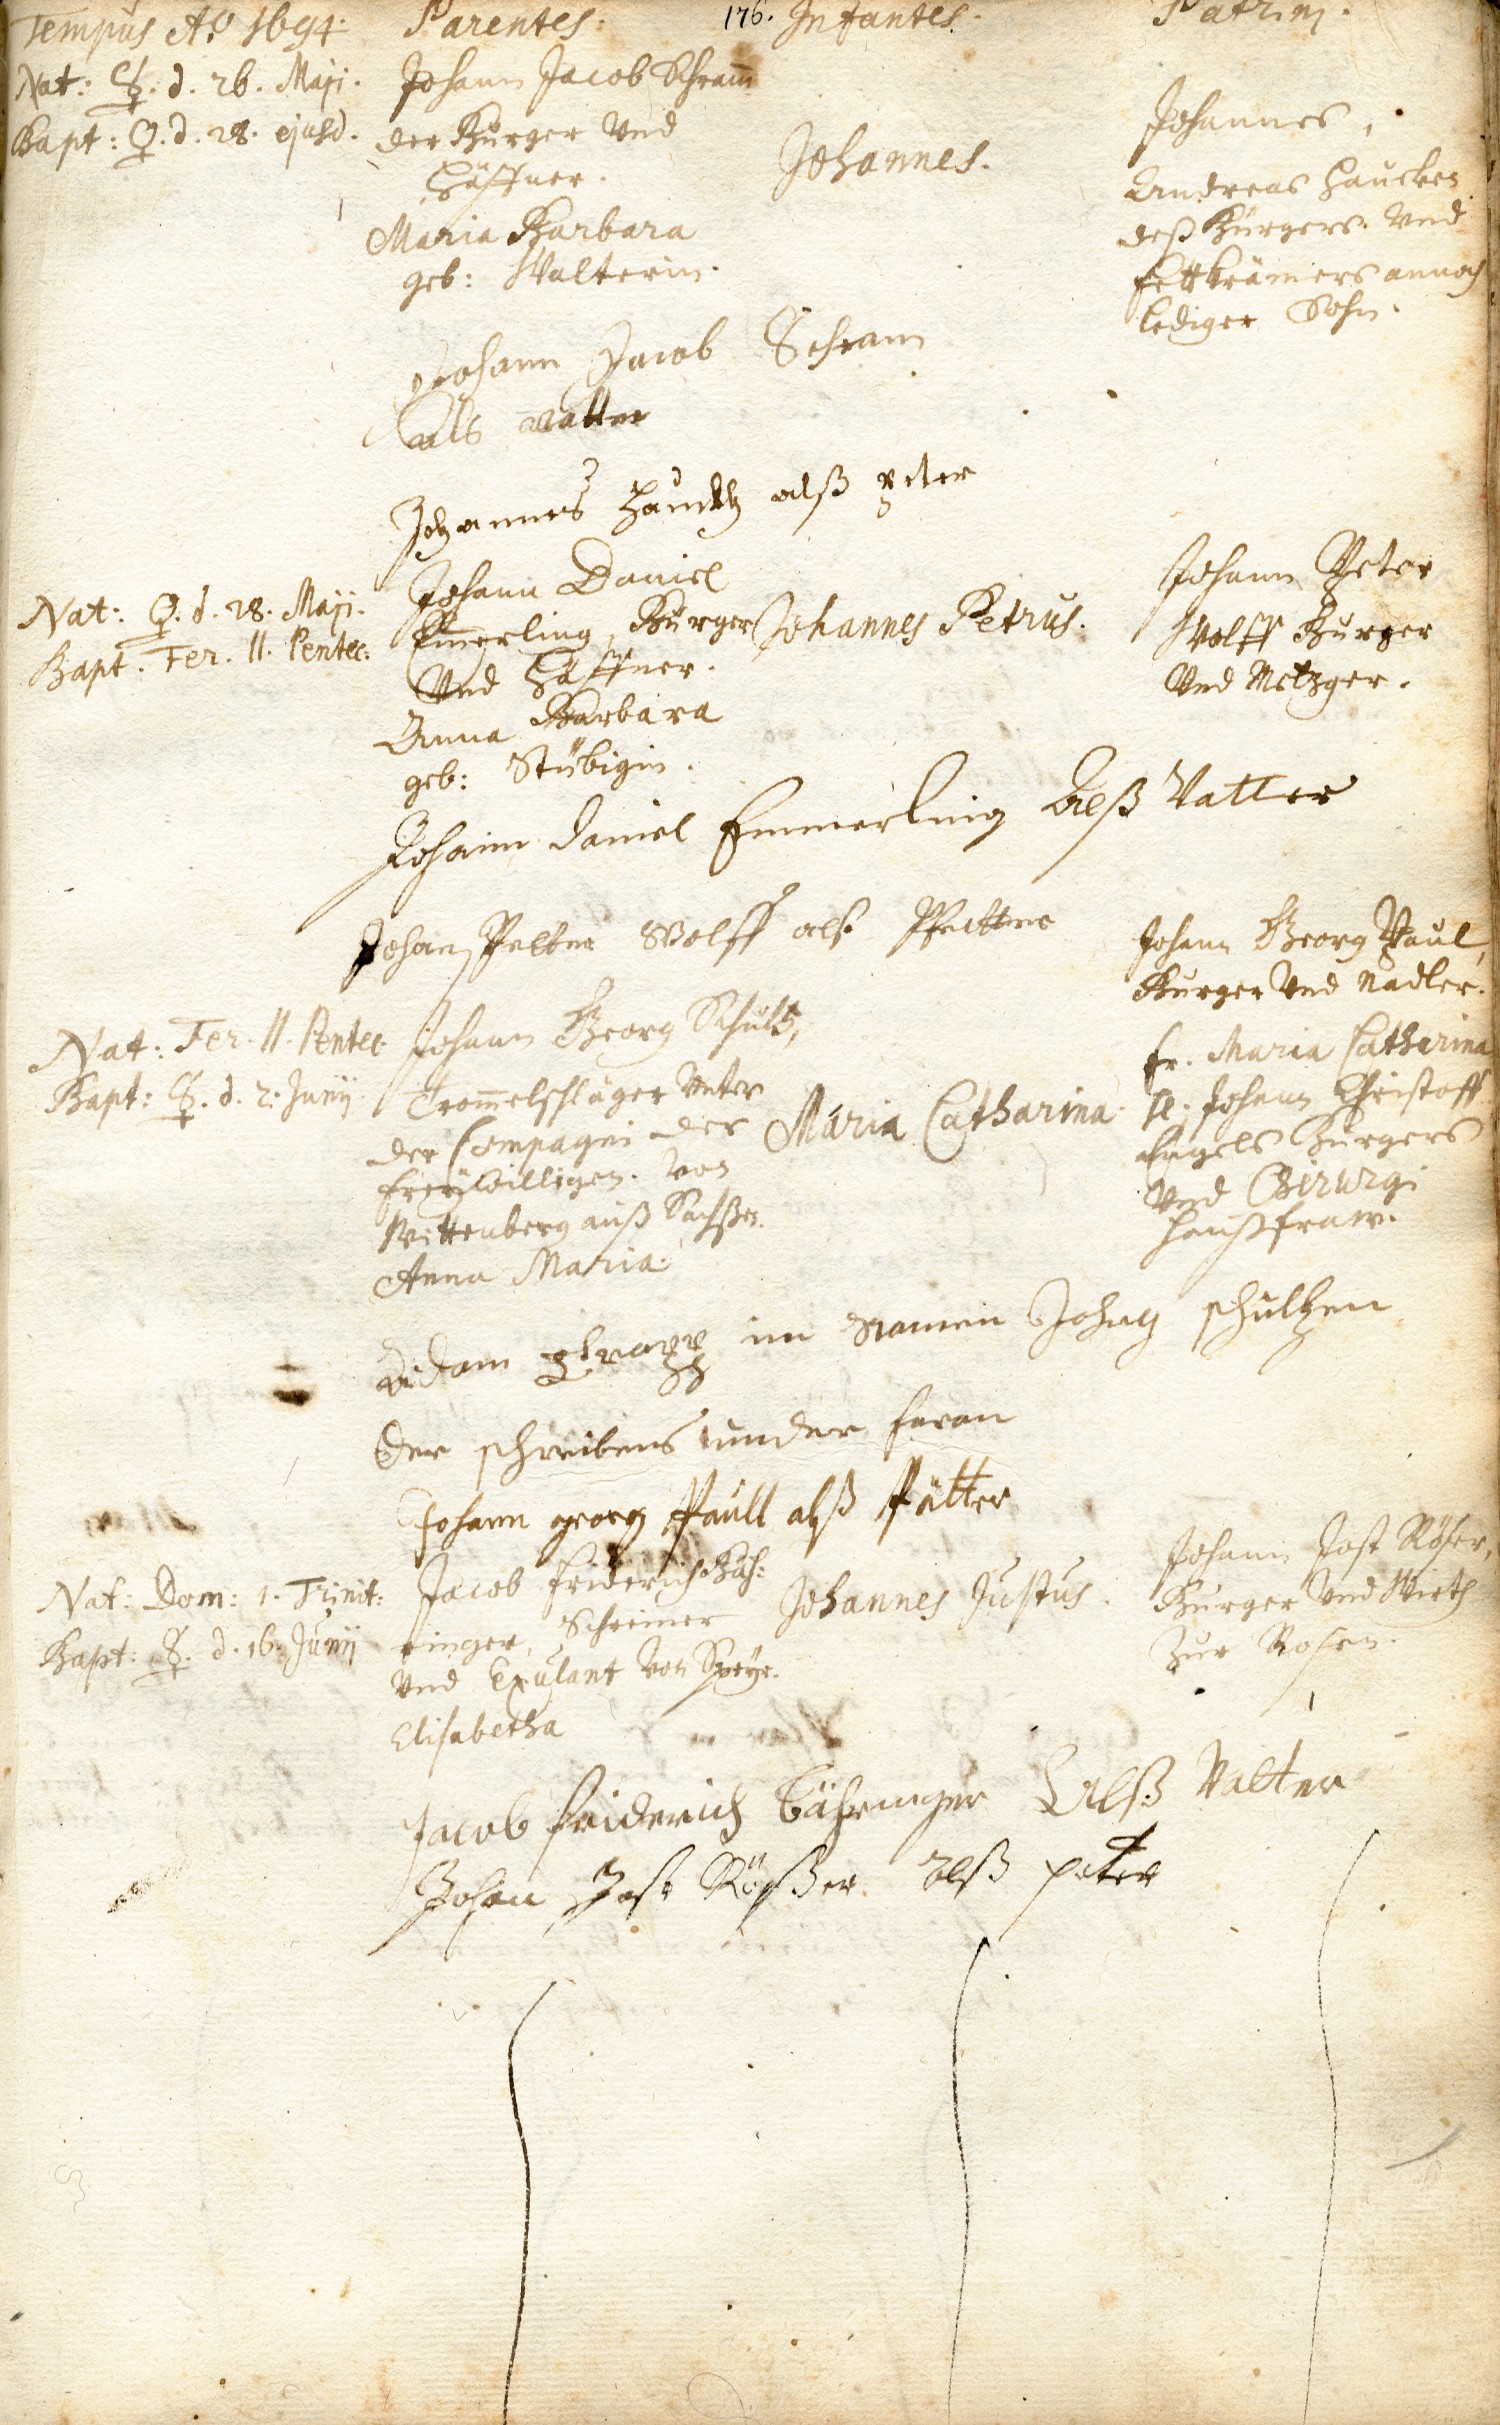 Tempus Aō 1694. Parentes: 176. Infantes. Patrini.
Nat: ☿. d. 26. Maji.
Bapt: ♀. d. 28. ejusd.
Johann Jacob Schram̄
der Bürger Vnd
Häffner.
Maria Barbara
geb: Walterin.
Johannes.
Johannes,
Andreas Haucken
deß Bürgers Vnd
annoch
lediger Sohn.
Johann Jacob Schram
als vatter
Johannes alß
Nat: ♀. d. 28. Maji.
Bapt. Fer. II. Pentec.
Johann Daniel
Em̄erling, Bürger
Vnd Häffner.
Anna Barbara
geb: Stübigin.
Johannes Petrus.
Johann Peter
Wolff Burger
Vnd Metzger.
Johann Daniel Emmerling Alß Vatter
Johan Wolff als Pfetter
Nat: Fer. II. Pentec.
Bapt: ☿. d. 2. Junij
Johann Georg Schultz,
Trom̄elschläger Vnter
der Compagni der
Freywilligen. von
Wittenberg auß Sachßen.
Anna Maria.
Maria Catharina.
Johann Georg Paul,
Burger Vnd Nadler.
Fr. Maria Catharina
Johann Christoff
Engels Bürgers
Vnd Chirurgi
Haußfraw.
Adam im Namen Schultzen
der schreibens
Johann georg Paull alß Pätter
Nat: Dom: 1. Trinit:
Bapt: ☿. d. 16. Junij
Jacob Friderich Bäh:
ringer, Schreiner
Vnd Exulant Von Speyr.
Elisabetha
Johannes Justus.
Johann Jost Röser,
Burger Vnd Wirth
Zur Rosen.
Jacob Friderich Bähringer Alß Vatter
Johan Jost Rößer alß peter